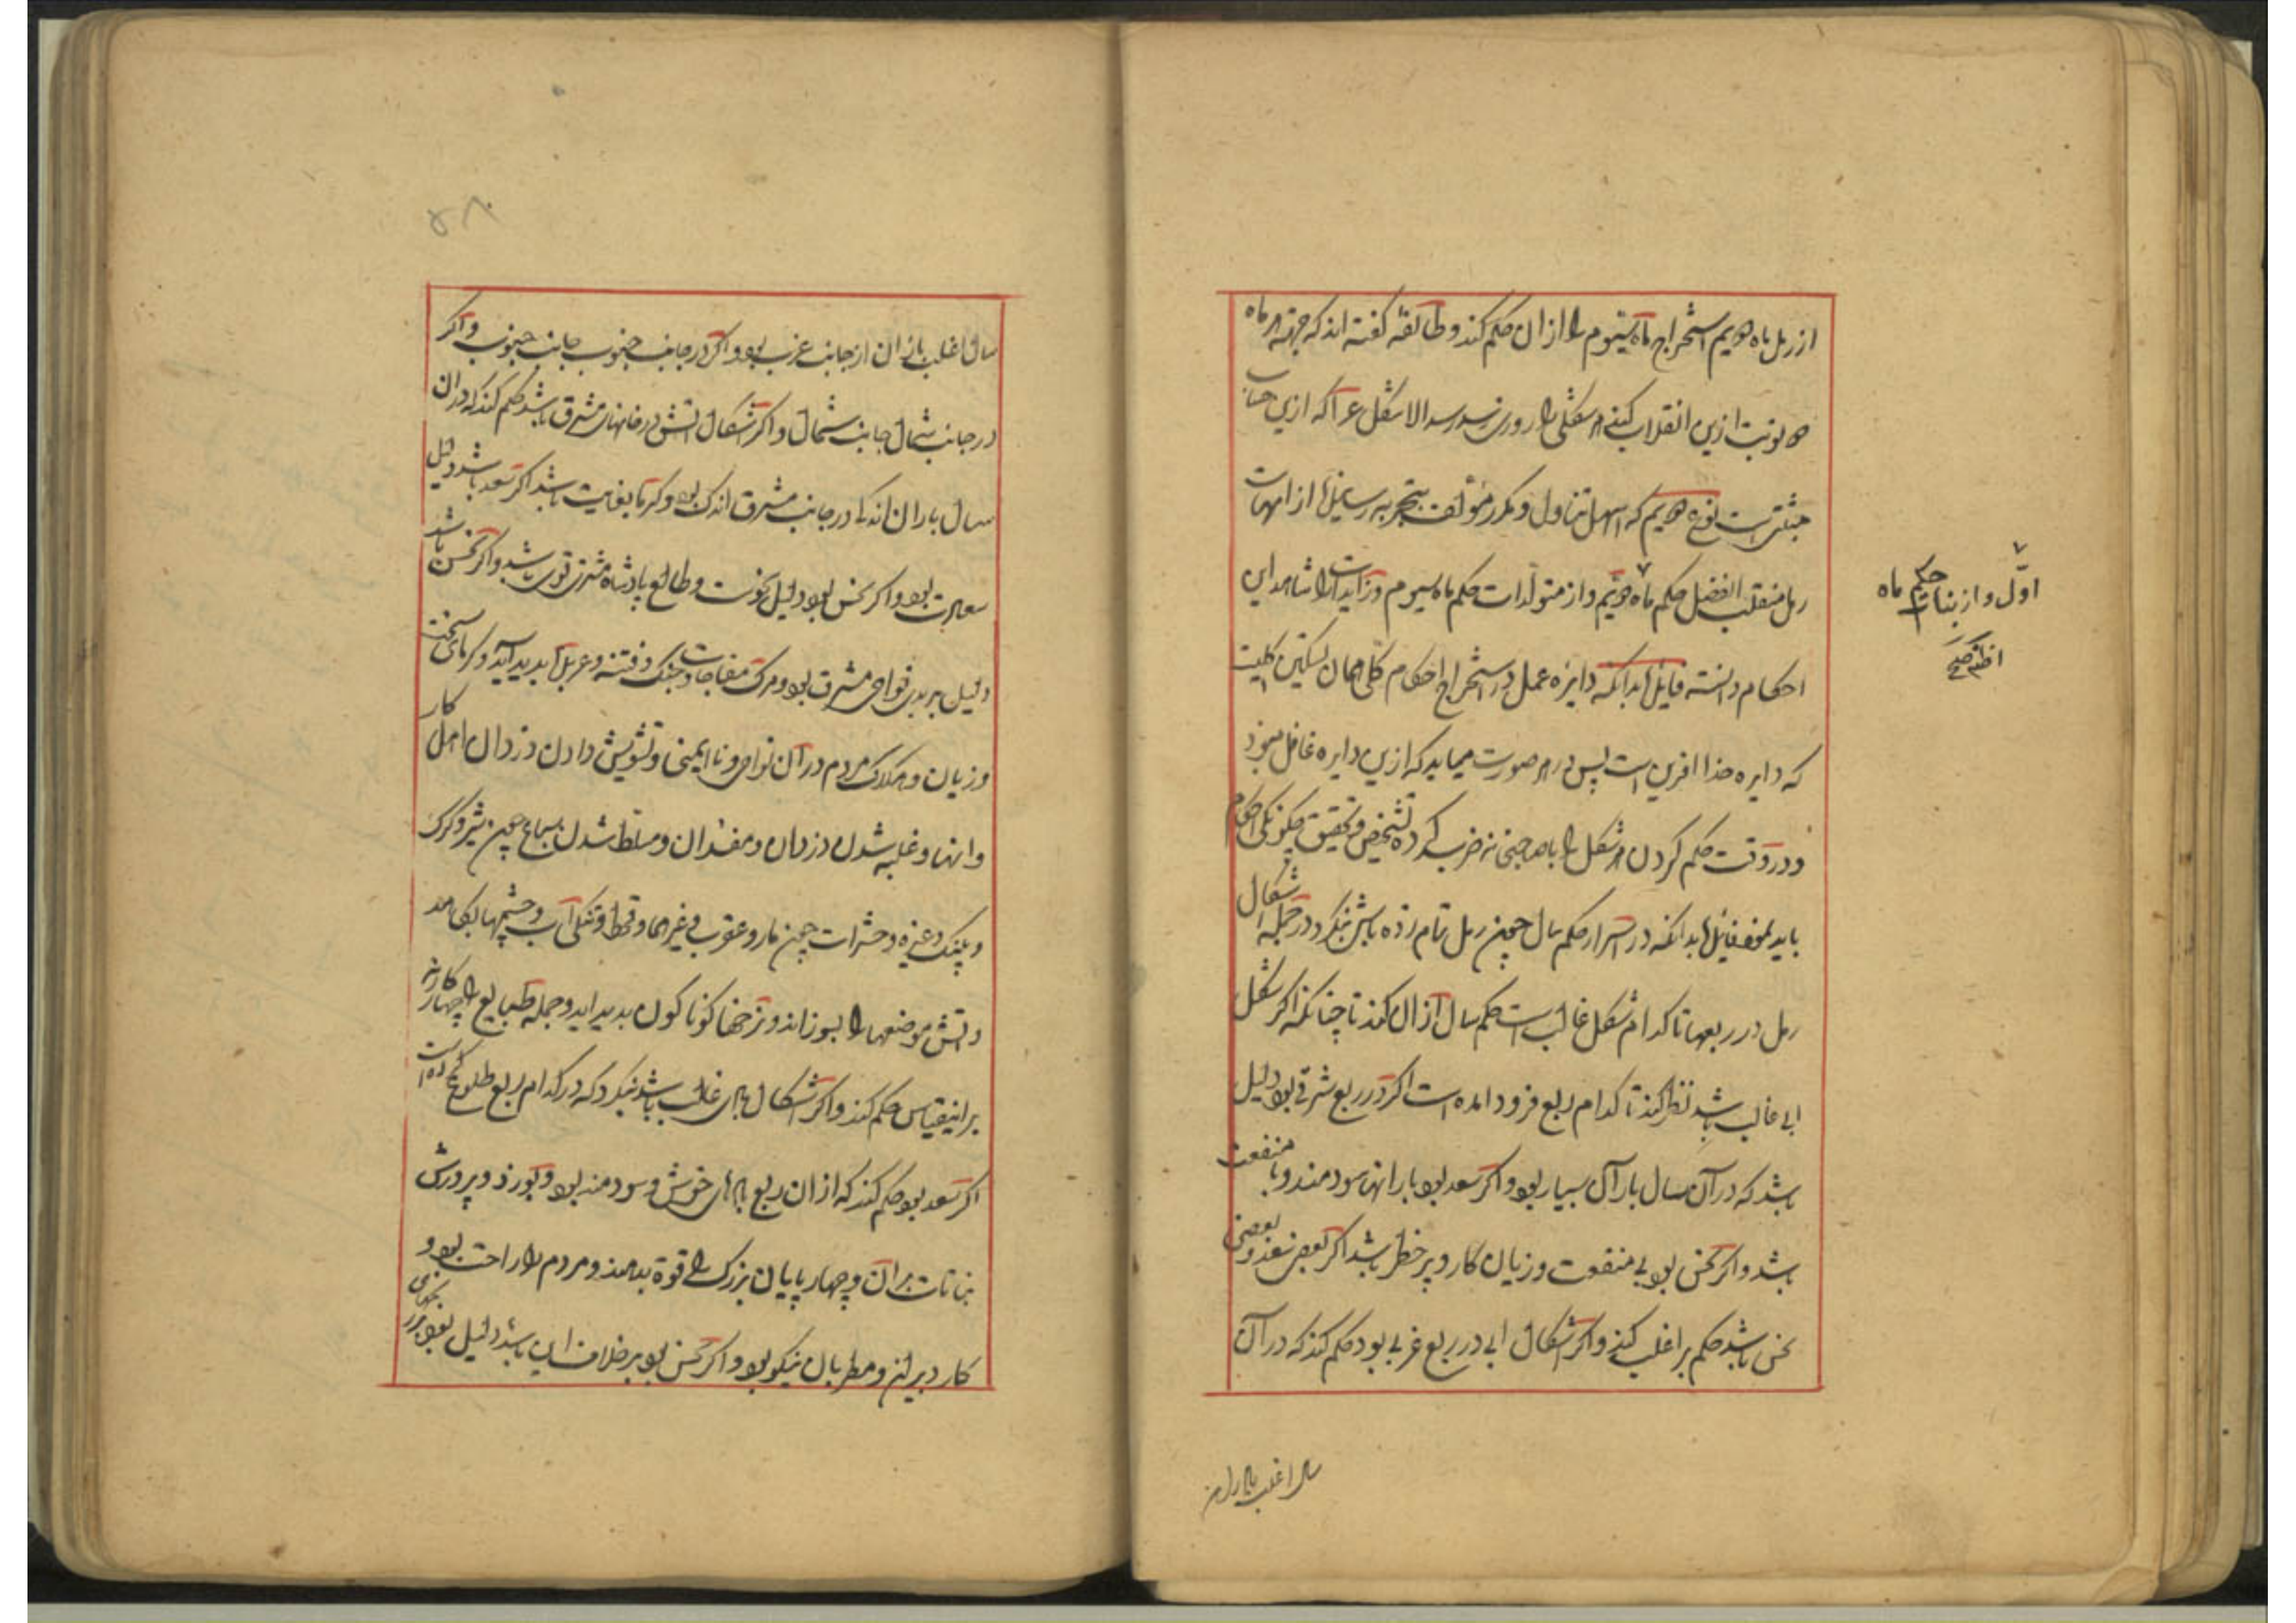 از رمل ماه دویم استخراج ماه سیوم را از ان حکم کند و طائفه گفته اند که جهة هر ماه
نوبت ازین انقلاب کنند هر شکلی را روزی الاشکل عر اکه ازین حساب
نوع دویم که اسهل تناول و مکرر مؤلف بتجربه رسانیده از امهات
رمل منقلب الفضل حکم ماه دویم و از متولدات حکم ماه سیوم و زایدات را شاهد این
احکام دانسته قایل اند آنکه دایره عمل در استخراج احکام کلی همان تسکین کلیت
که دایره خدا افرین است پس در هر صورت میباید که ازین دایره غافل نبود
و در وقت حکم کردن هر شکل را با صاحب خانه ضرب کرده تشخیص و تحقیق چکونکی احکام
باید نمود بدانکه در اسرار حکم سال چون رمل تمام زده باشی بنکرد در جمله اشکال
رمل در ربعها تا کدام شکل غالبست حکم سال از ان کند تا چنانکه اکر شکل
ابی غالب باشد نظر کند تا کدام ربع فرود امده است اکر در ربع شرقی بود دلیل
باشد که در آن سال باران بسیار بود و اکر سعد بود بارانها سودمند و با منفعت
باشد و اکر نحس بود بی منفعت و زیان کار و پر خطر باشد اکر بعضی سعد و بعضی
نحس باشد حکم بر اغلب کند و اکر اشکال ابی در ربع غربی بود حکم کند که در آن
اول و از بنات حکم ماه
صح
سال اغلب باران
۵۸
سال اغلب باران از جانب غرب بود و اکر در جانب جنوب جانب جنوب و اکر
در جانب شمال جانب شمال و اکر اشکال اتش در خانهای مشرق باشد حکم کند که در ان
سال باران اندکی در جانب مشرق اندک بود و کرما بغایت باشد اکر سعد باشد دلیل
سعادت بود و اکر نحس بود دلیل نحوست و طالع پادشاه مشرق قوی باشد و اکر نحس باشد
دلیل بر بدی نواحی مشرق بود و مرک مفاجات و جنک و فتنه و بدید آید و کرمای سخت
و زیان و هلاک مردم در آن نواحی و نا ایمنی و تشویش دادن دزدان اهل کار
وانها و غلبه شدن دزدان و مفسدان و مسلط شدن سباع چون شیر و کرک
و پلنک و غیره و حشرات چون مار و عقرب و غیرهما و قحط و تنکی آب و چشمها بکاهد
و اتش موضعها را بسوزاند و زخمها کوناکون بدید اید و جمله طبایع را چهار کانه
برانیقیاس حکم کند و اکر اشکال بادی غالب باشد بنکرد که در کدام ربع طلوع کرده است
اکر سعد بود حکم کند که از ان ربع بادهای خوش و سودمند بود و بوزد و پرورش
نباتات بران و چهار پایان بزرک را قوة بدهند و مردم را راحت بود و
کار دبیران و مطربان نیکو بود و اکر نحس بود بر خلاف این باشد دلیل بود بر